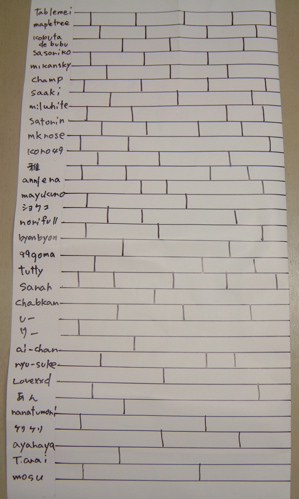 Tablemei
mapletree
kobuta
de bubu
Sasoriko
mikansky
champ
saaki
milwhite
Satorin
mkrose
icoro49
雅
annfena
mayukano
ショウコ
norifull
byonbyon
99goma
tutty
Sarah
chabkan
しー
りー
ai-chan
ryu-suke
Lovexxd
あん
nanatumori
ケリケリ
ayahaya
T.arai
mosu